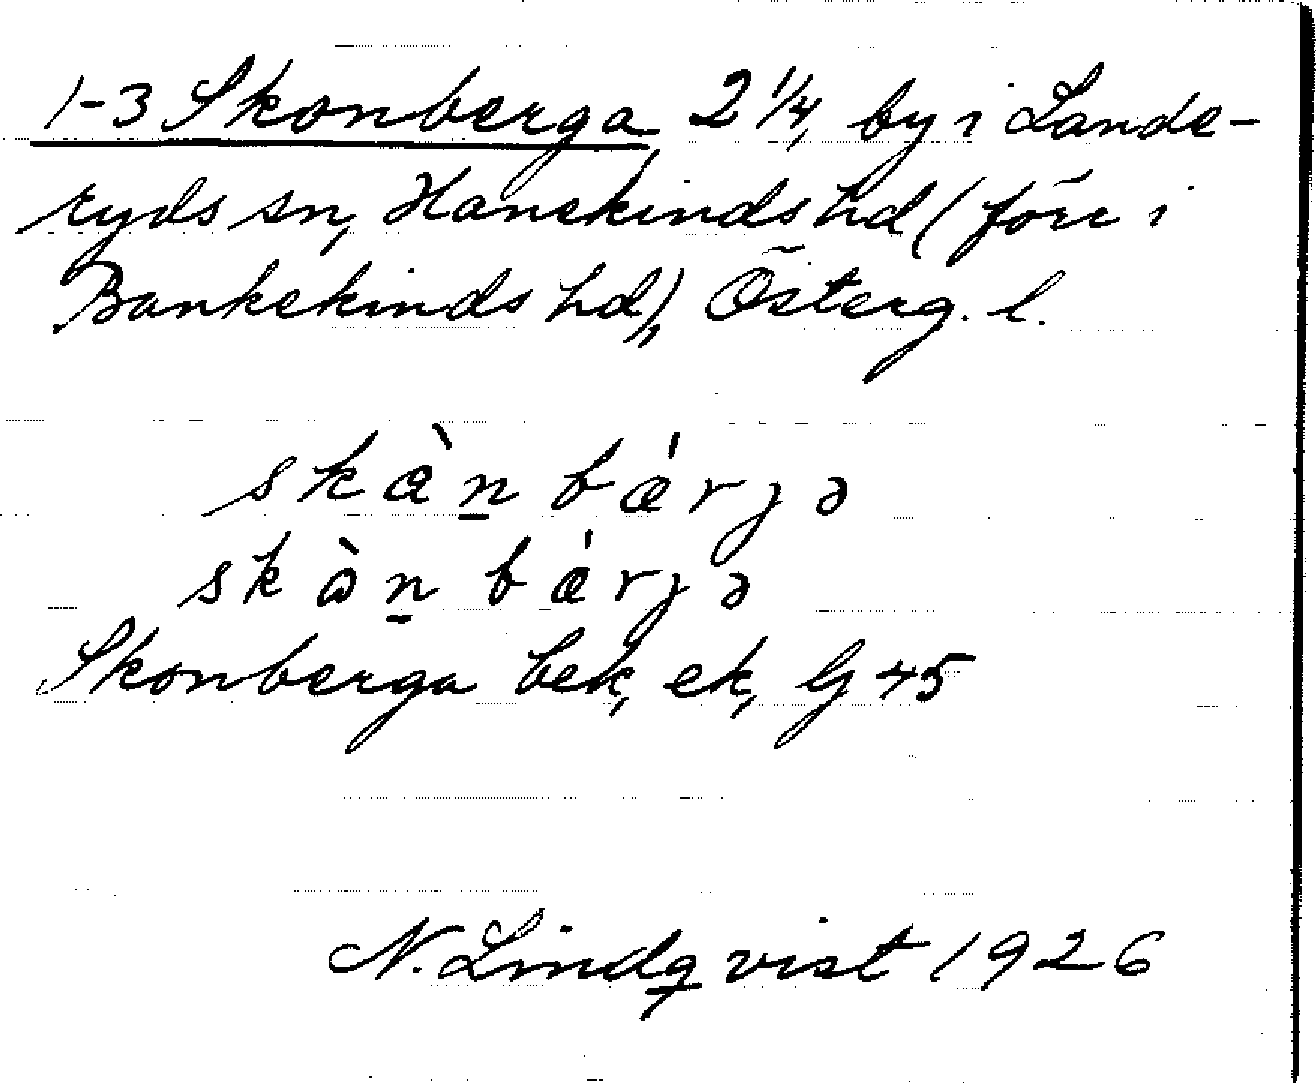 1-3 Skonberga 2 1/4, by i Lande-
ryds sn, Hanekinds hd (förr i
Bankekinds hd), Österg. l.
skæ̀n̲ bǽrjə
skòn̲ bǽrjə
Skonberga bek, ek, G 45
N. Lindqvist 1926